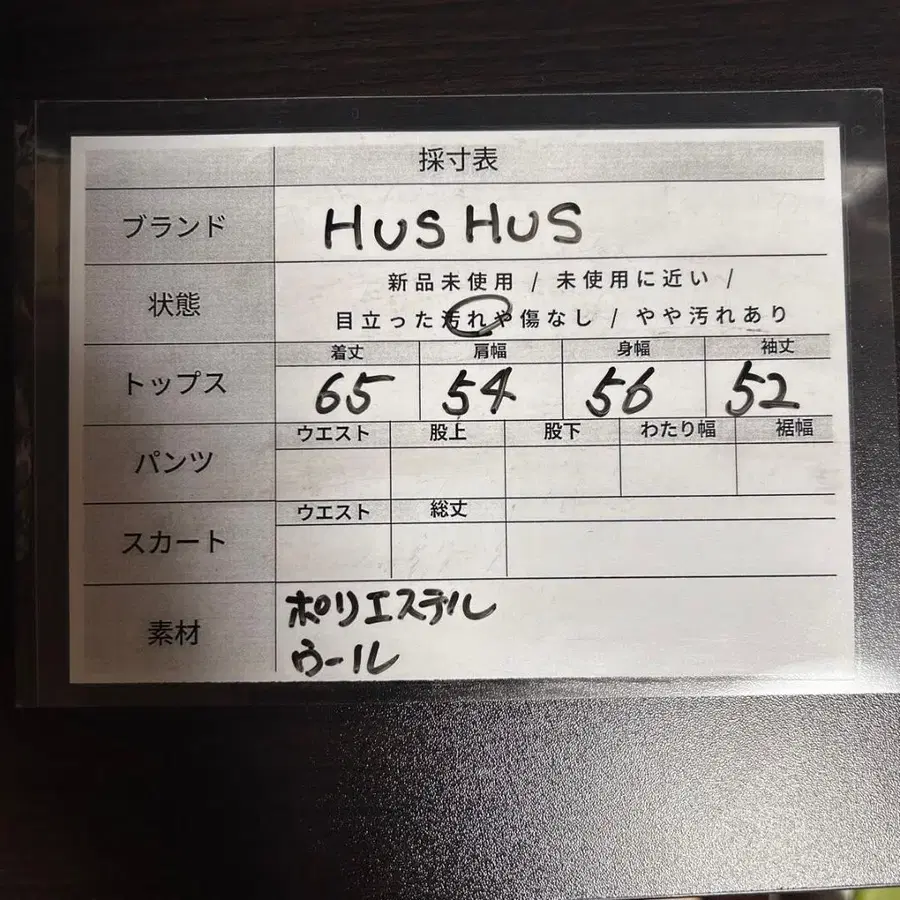 採寸表
ブランド HUS HUS
状態 新品未使用 / 未使用に近い /
目立った汚れや傷なし / やや汚れあり
着丈 肩幅 身幅 袖丈
トップス 65 54 56 52
ウエスト 股上 股下 わたり幅 裾幅
パンツ
ウエスト 総丈
スカート
素材 ポリエステル
ウール